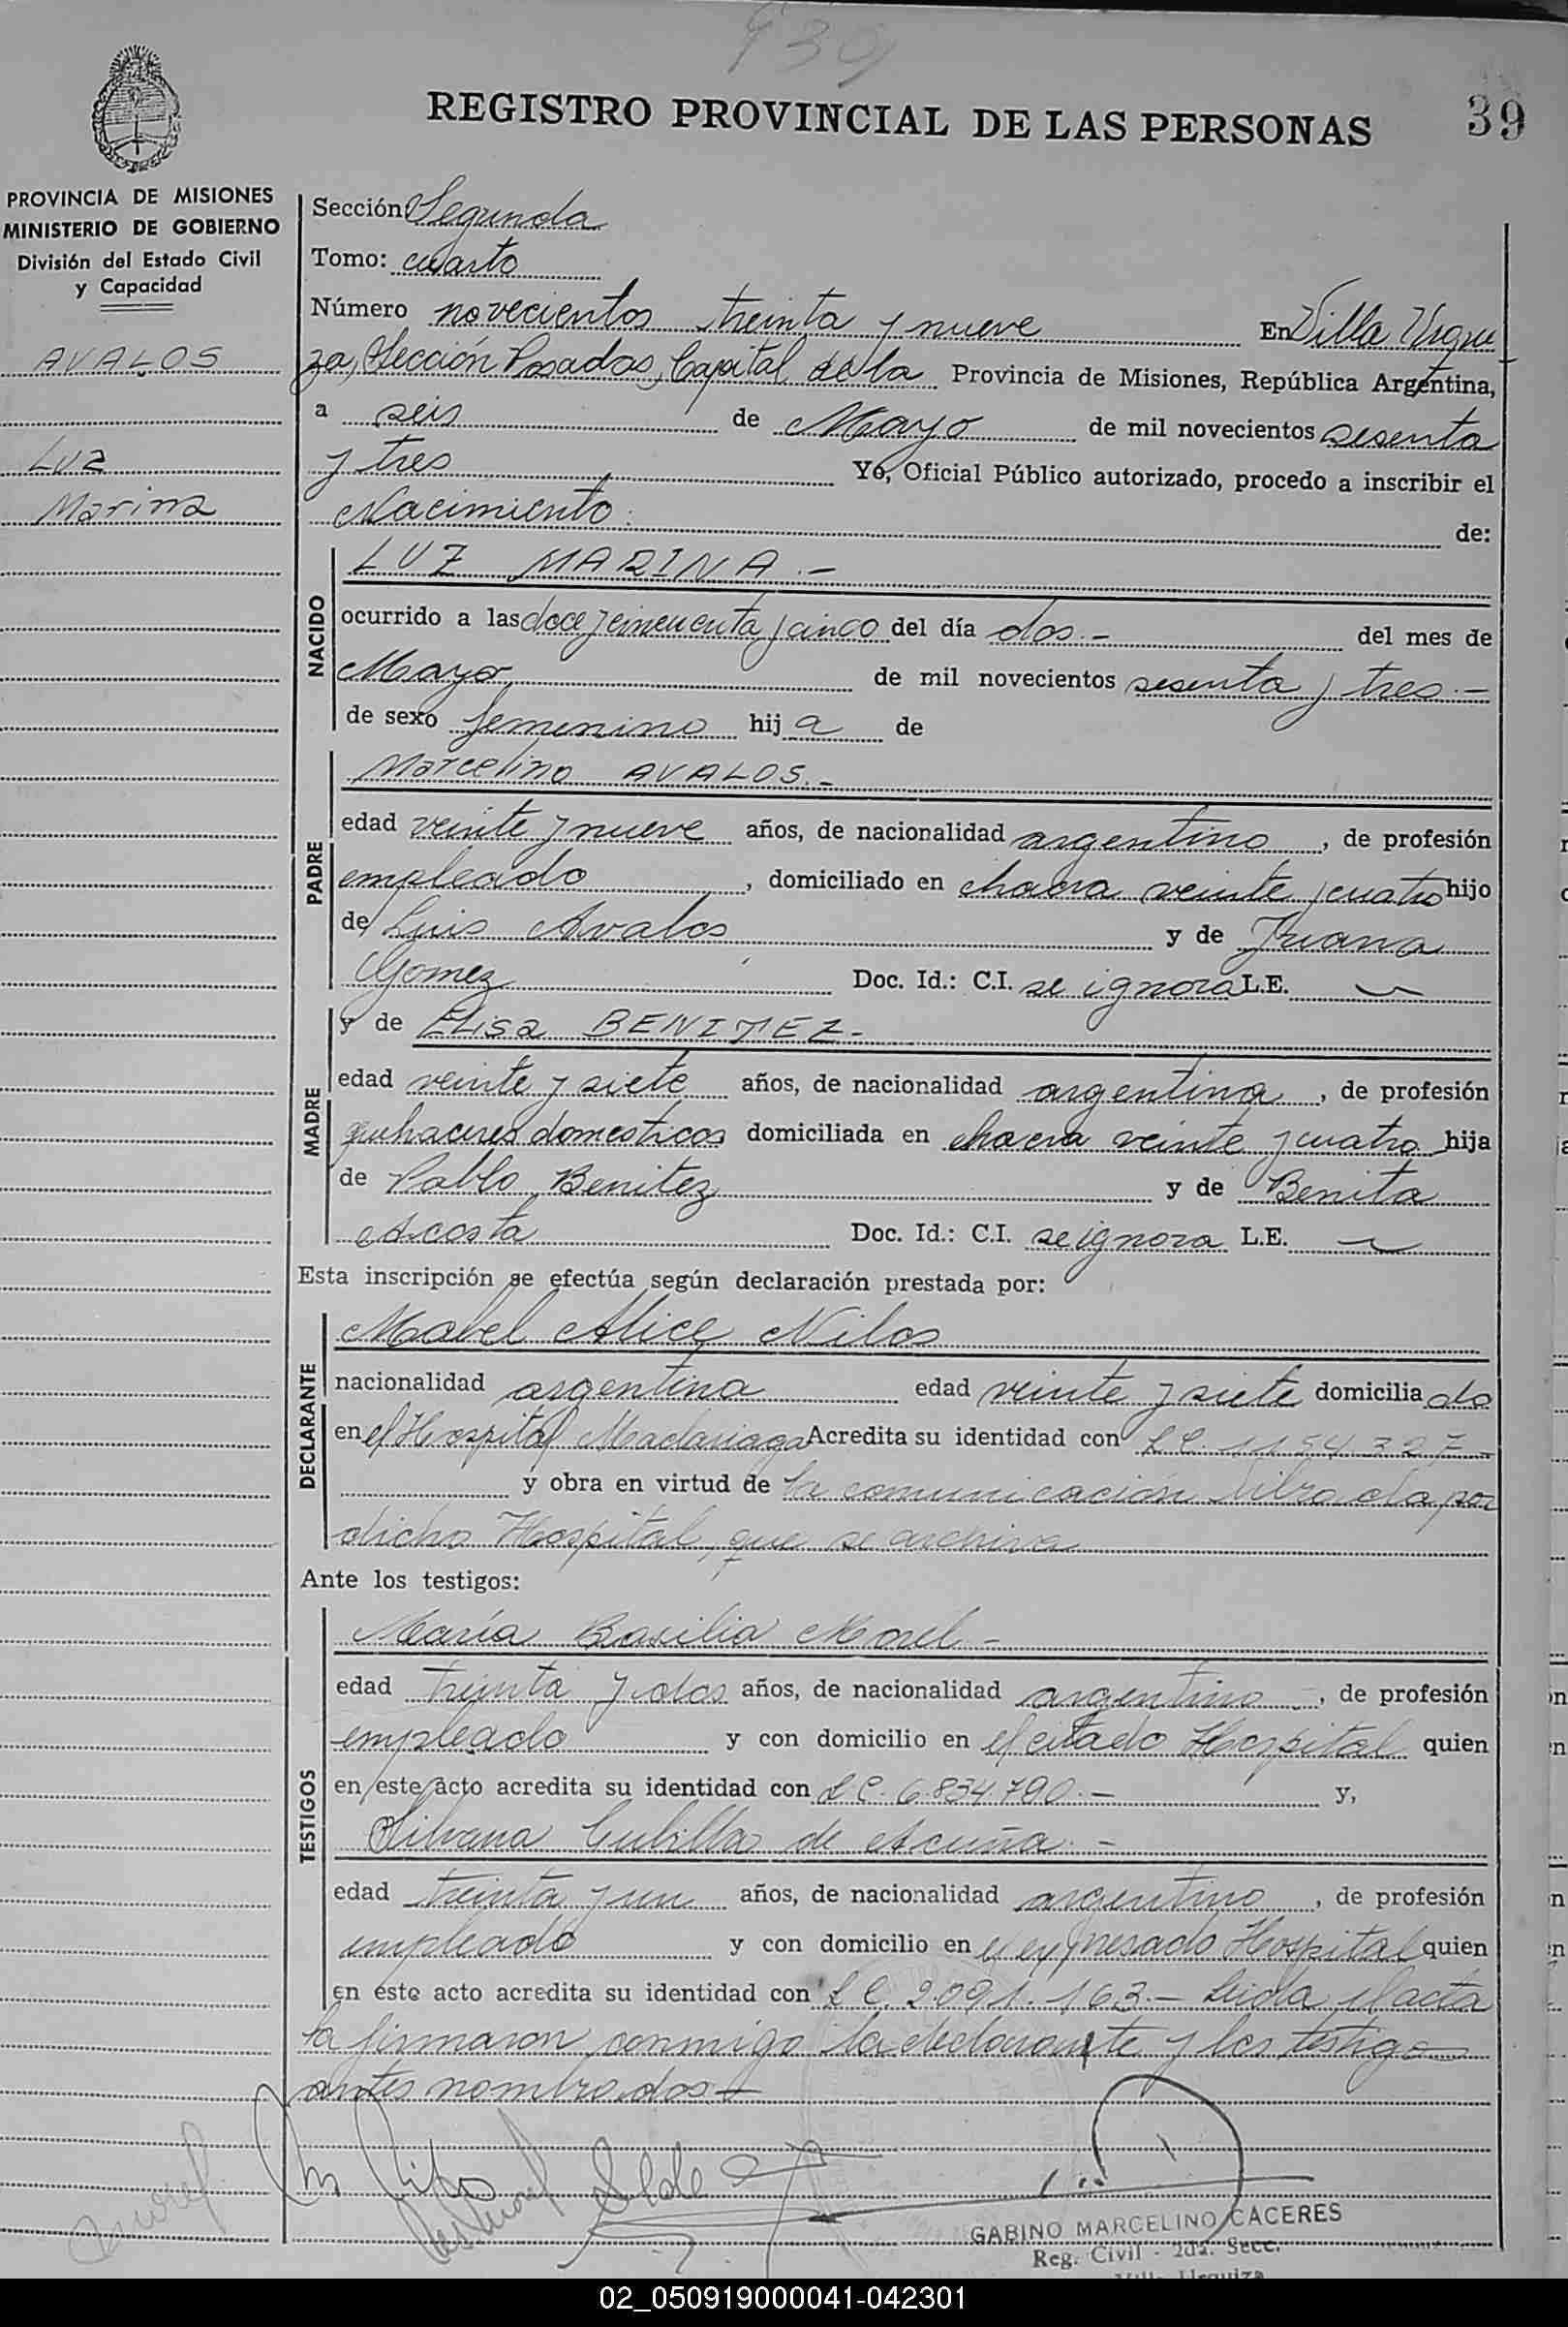 939
REGISTRO PROVINCIAL DE LAS PERSONAS 39
PROVINCIA DE MISIONES
MINISTERIO DE GOBIERNO
División del Estado Civil
y Capacidad
AVALOS
Luz
Marina
Sección Segunda
Tomo: cuarto
Número novecientos treinta y nueve En Villa Urqui
za, Sección Posadas, Capital de la Provincia de Misiones, República Argentina,
a seis de Mayo de mil novecientos sesenta
y tres Yo, Oficial Público autorizado, procedo a inscribir el
Nacimiento de:
NACIDO
LUZ MARINA.-
ocurrido a las doce y cincuenta y cinco del día dos.- del mes de
Mayo de mil novecientos sesenta y tres.-
de sexo femenino hija de
PADRE
Marcelino AVALOS.-
edad veinte y nueve años, de nacionalidad argentino, de profesión
empleado, domiciliado en chacra veinte y cuatro hijo
de Luis Avalos y de Juana
Gomez Doc. Id.: C.I. se ignora L.E.
MADRE
y de Elisa BENITEZ-
edad veinte y siete años, de nacionalidad argentina, de profesión
quehaceres domesticos domiciliada en chacra veinte y cuatro hija
de Pablo Benitez y de Benita
Acosta Doc. Id.: C.I. se ignora L.E.
Esta inscripción se efectúa según declaración prestada por:
DECLARANTE
Mabel Alice Nilos
nacionalidad argentina edad veinte y siete domiciliado
en el Hospital Madariaga Acredita su identidad con L.C. 1154327-
y obra en virtud de la comunicación librada por
dicho Hospital, que se archiva
Ante los testigos:
TESTIGOS
María Basilia Morel-
edad treinta y dos años, de nacionalidad argentino, de profesión
empleado y con domicilio en el citado Hospital quien
en este acto acredita su identidad con L C. 6.834.790.- y,
Silvana Cubilla de Acuña.-
edad treinta y un años, de nacionalidad argentino, de profesión
empleado y con domicilio en el expresado Hospital quien
en este acto acredita su identidad con L C. 2.091.163.- Leida el acta
la firmaron conmigo la declarante y los testigos
antes nombrados-
GABINO MARCELINO CACERES
Reg. Civil - 2da. Secc.
Villa Urquiza
02_050919000041-042301